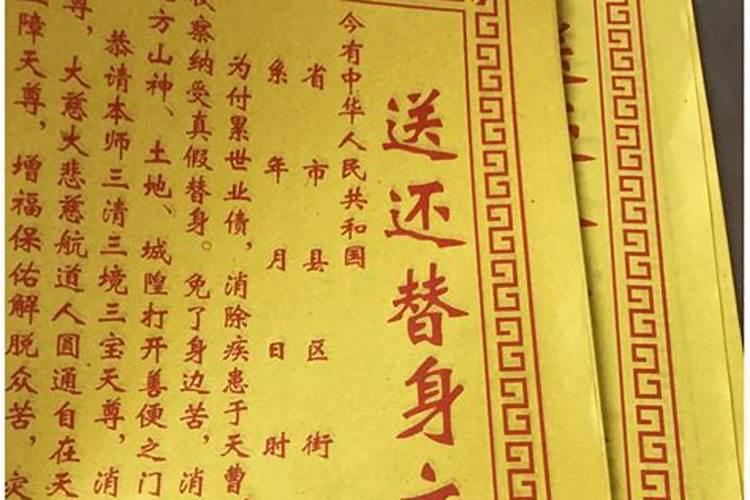 送还替身文
今有中华人民共和国
省市县区街
系年月日时
为付累世业债，消除疾患于天曹，
察纳受真假替身。免了身边苦，消
方山神、土地、城隍打开善便之门
恭请本师三清三境三宝天尊，消
尊，大慈大悲慈航道人圆通自在天
障天尊，增福保佑解脱众苦，灾